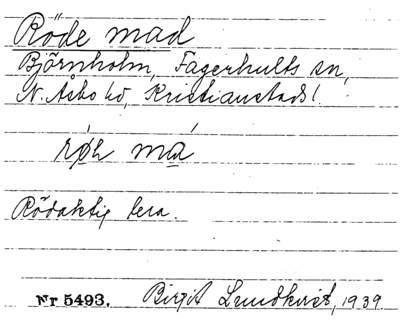 Röde mad
Björnholm, Fagerhults sn,
N. Åsbo hd, Kristianstads l.
má
Rödaktig lera.
Nr 5493. Birgit Lundkvist, 1939